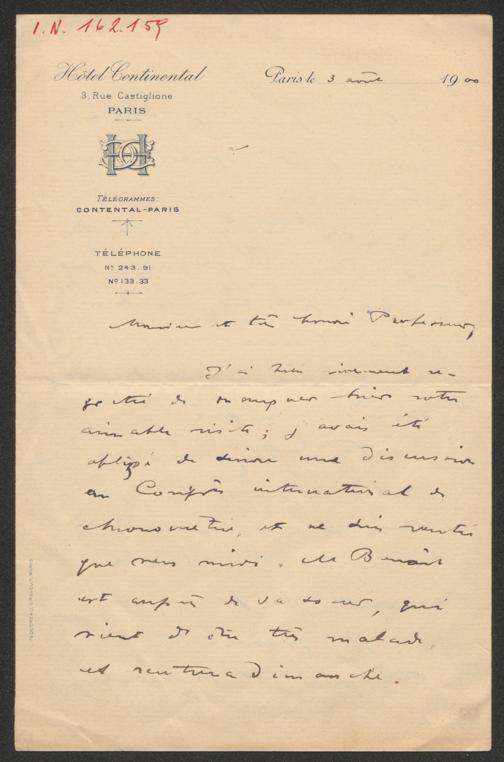 I.N. 162.159
Hôtel Continental
3, Rue Castiglione
PARIS
Paris le 3 août 1900
TÉLÉGRAMMES:
CONTENTAL-PARIS
TÉLÉPHONE
No 243.91
No 133.33
Monsieur et très honoré Professeur,
J'ai bien vivement re-
gretté de manquer hier votre
aimable visite; j'avais été
obligé de suivre une discussion
au Congrès international de
chronométrie, et ne suis rentré
que vers midi. M Benoît
est auprès de sa sœur, qui
vient d'être très malade,
et rentrera dimanche.